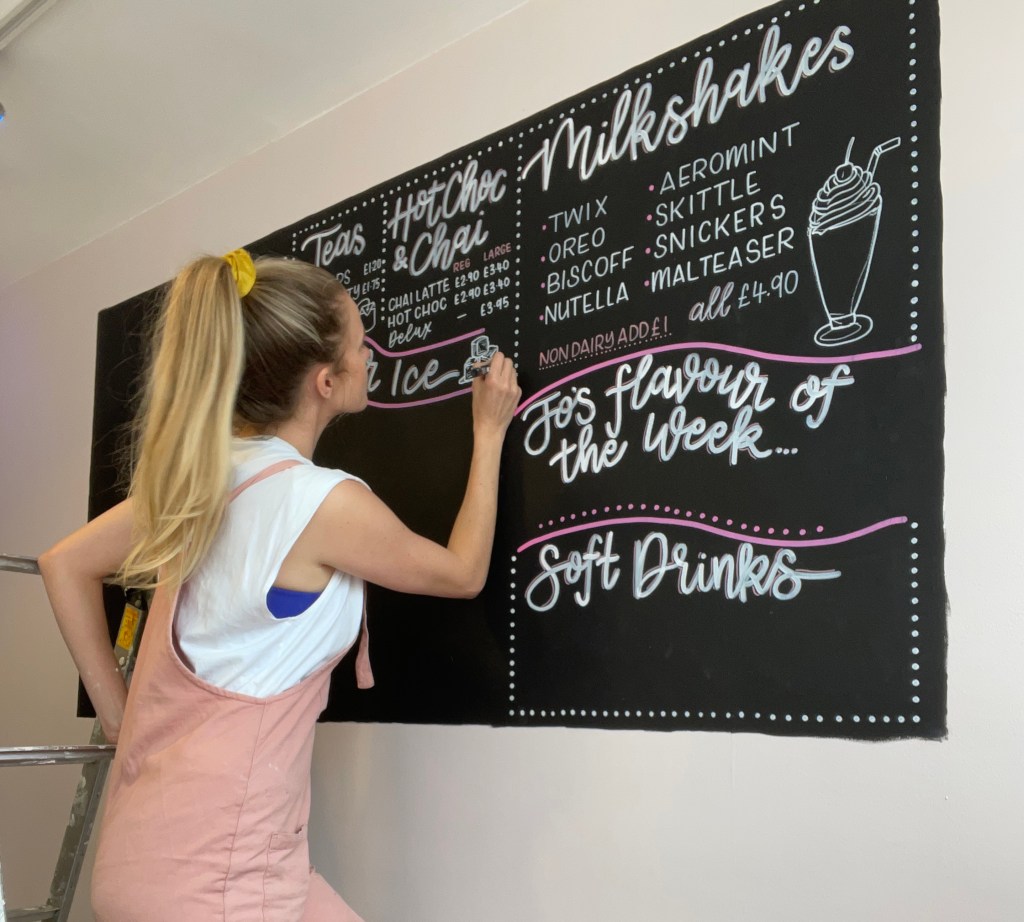 Teas
£1.20
£1.75
Hot Choc
& Chai
REG LARGE
CHAI LATTE £2.90 £3.40
HOT CHOC £2.90 £3.40
Delux — £3.95
Ice
Milkshakes
·TWIX
·OREO
·BISCOFF
·NUTELLA
·AEROMINT
·SKITTLE
·SNICKERS
·MALTEASER
NON DAIRY ADD £1
all £4.90
Jo's flavour of
the week...
Soft Drinks